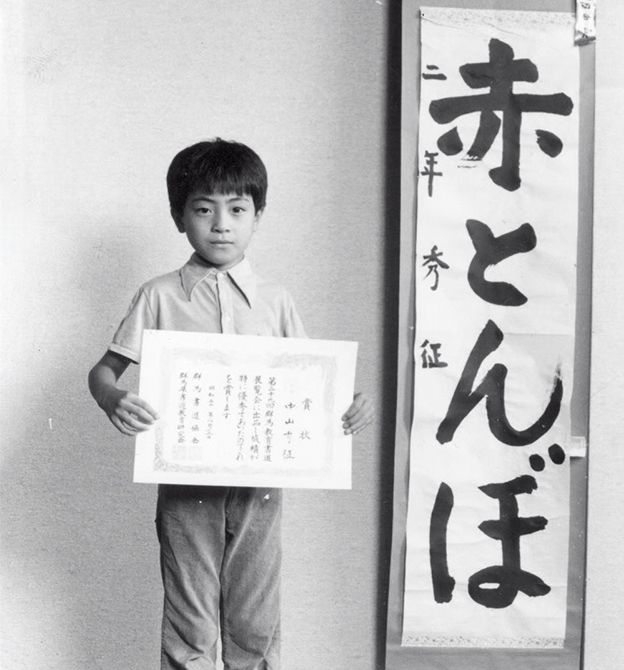 赤とんぼ
二年 秀征
賞状
中山秀征
群馬教育書道
展覧会に出品し成績が
特に優秀であったのでこれ
を賞します
群馬書道協会